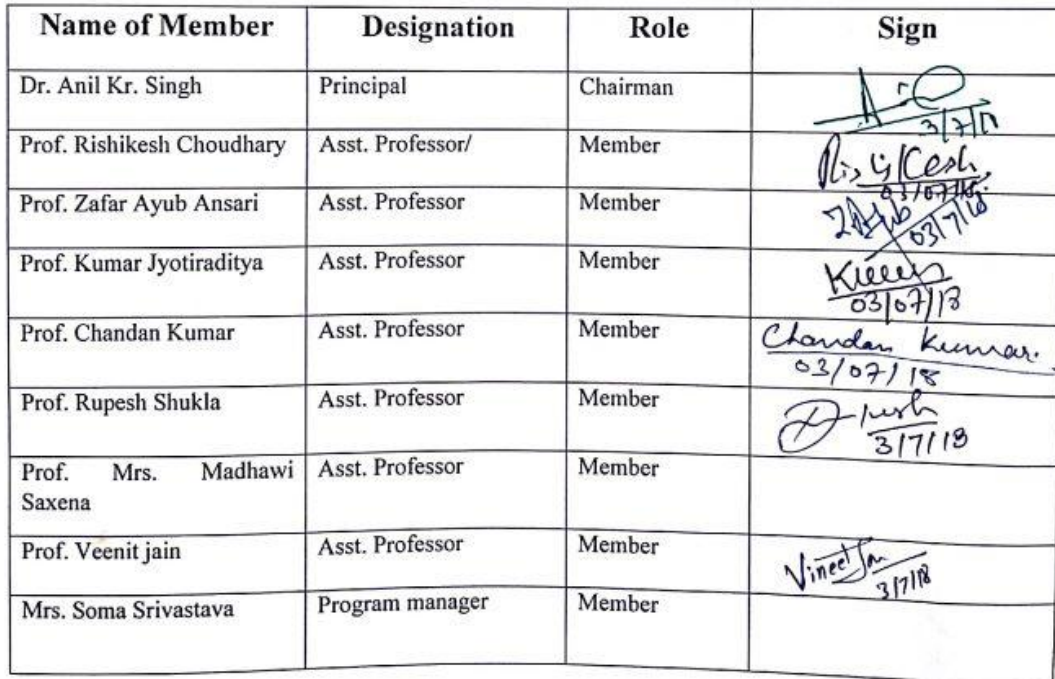 Name of Member Designation Role Sign
Dr. Anil Kr. Singh Principal Chairman
3/7/18
Prof. Rishikesh Choudhary Asst. Professor/ Member Rishikesh
03/07/18
Prof. Zafar Ayub Ansari Asst. Professor Member
03/7/18
Prof. Kumar Jyotiraditya Asst. Professor Member
03/07/18
Prof. Chandan Kumar Asst. Professor Member Chandan Kumar.
03/07/18
Prof. Rupesh Shukla Asst. Professor Member
3/7/18
Prof. Mrs. Madhawi Asst. Professor Member
Saxena
Prof. Veenit jain Asst. Professor Member Vineet Jain
3/7/18
Mrs. Soma Srivastava Program manager Member